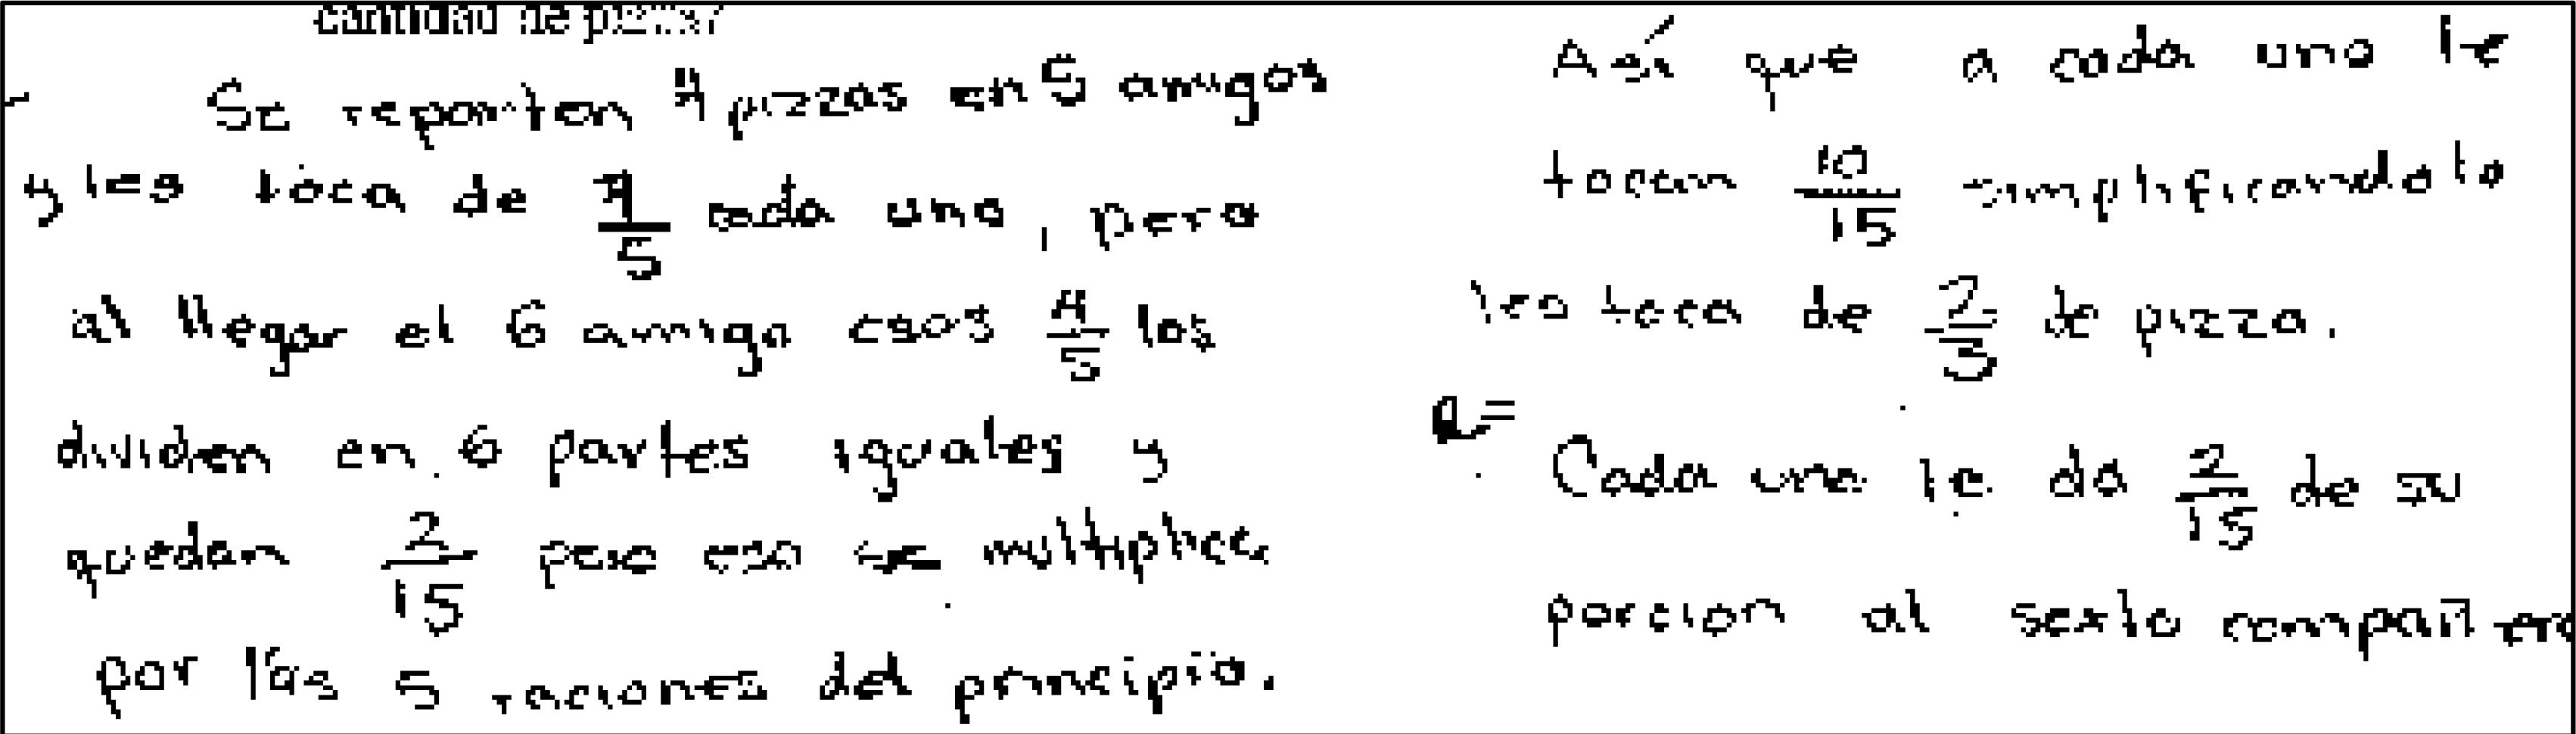 cantidad de pizza?
Se reparten 4 pizzas en 5 amigos
y les toca de 4/5 cada uno, pero
al llegar el 6 amigo esos 4/5 los
dividen en 6 partes iguales y
quedan 2/15 pero eso se multiplica
por las 5 raciones del principio.
Así que a cada uno le
tocan 10/15 simplificandolo
les toca de 2/3 de pizza.
R= Cada uno le da 2/15 de su
porcion al sexto compañero